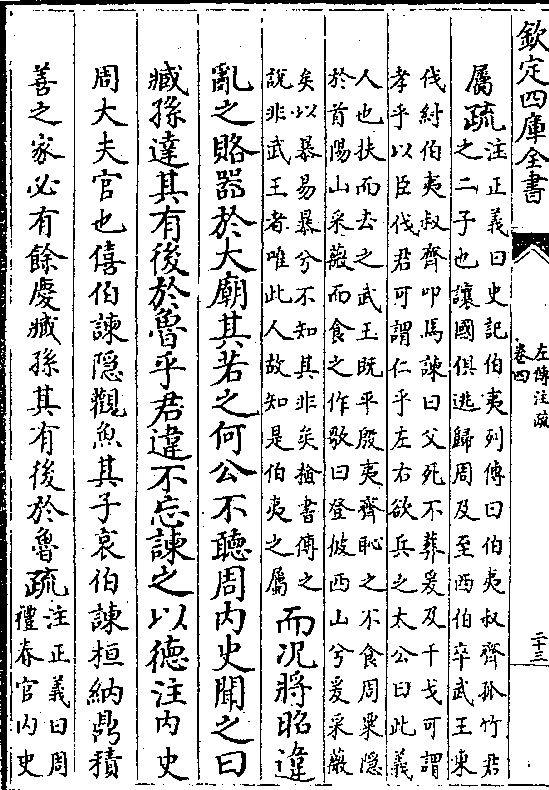 欽定四庫全書
左傳注疏
卷四
二十三
屬疏注正義曰史記伯夷列傳曰伯夷叔齊孤竹君
之二子也讓國俱逃歸周及至西伯卒武王東
伐紂伯夷叔齊叩馬諫曰父死不葬爰及干戈可謂
孝乎以臣伐君可謂仁乎左右欲兵之太公曰此義
人也扶而去之武王既平殷夷齊恥之不食周粟隱
於首陽山采薇而食之作歌曰登彼西山兮爰采薇
矣以暴易暴兮不知其非矣檢書傳之
說非武王者唯此人故知是伯夷之屬
而况將昭違
亂之賂器於大廟其若之何公不聽周内史聞之曰
臧孫達其有後於魯乎君違不忘諫之以德注内史
周大夫官也僖伯諫隱觀魚其子哀伯諫桓納鼎積
善之家必有餘慶臧孫其有後於魯疏注正義曰周
禮春官内史